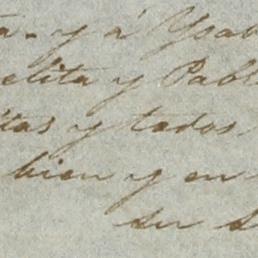 ta - y á Ysab
elita y Pabl
itas y todos
bien y en
su s